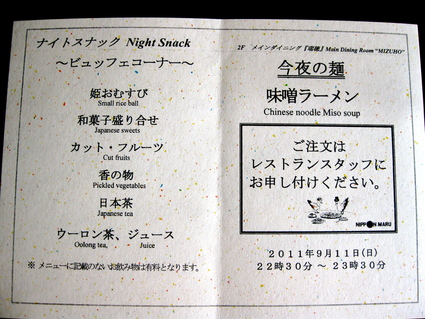 ナイトスナック Night Snack
～ビュッフェコーナー～
姫おむすび
Small rice ball
和菓子盛り合せ
Japanese sweets
カット・フルーツ
Cut fruits
香の物
Pickled vegetables
日本茶
Japanese tea
ウーロン茶、ジュース
Oolong tea, Juice
※ メニューに記載のないお飲み物は有料となります。
2F メインダイニング『瑞穂』Main Dining Room "MIZUHO"
今夜の麺
味噌ラーメン
Chinese noodle Miso soup
ご注文は
レストランスタッフに
お申し付けください。
NIPPON MARU
2011年9月11日(日)
22時30分 ～ 23時30分